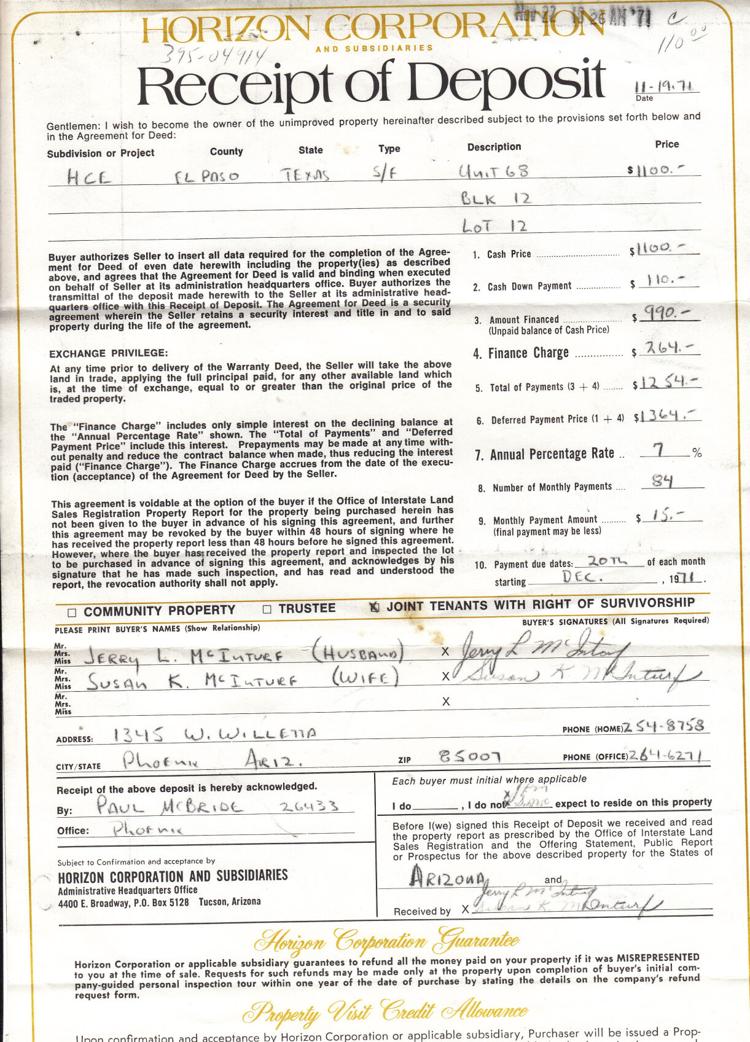 HORIZON CORPORATION
NOV 22 10 26 AM '71
C
110 00
AND SUBSIDIARIES
395-04914
Receipt of Deposit
11-19-71
Date
Gentlemen: I wish to become the owner of the unimproved property hereinafter described subject to the provisions set forth below and
in the Agreement for Deed:
Subdivision or Project County State Type Description Price
HCE EL PASO TEXAS S/F UNIT 68 $1100.-
BLK 12
LOT 12
Buyer authorizes Seller to insert all data required for the completion of the Agree-
ment for Deed of even date herewith including the property(ies) as described
above, and agrees that the Agreement for Deed is valid and binding when executed
on behalf of Seller at its administration headquarters office. Buyer authorizes the
transmittal of the deposit made herewith to the Seller at its administrative head-
quarters office with this Receipt of Deposit. The Agreement for Deed is a security
agreement wherein the Seller retains a security interest and title in and to said
property during the life of the agreement.
EXCHANGE PRIVILEGE:
At any time prior to delivery of the Warranty Deed, the Seller will take the above
land in trade, applying the full principal paid, for any other available land which
is, at the time of exchange, equal to or greater than the original price of the
traded property.
The "Finance Charge" includes only simple interest on the declining balance at
the "Annual Percentage Rate" shown. The "Total of Payments" and "Deferred
Payment Price" include this interest. Prepayments may be made at any time with-
out penalty and reduce the contract balance when made, thus reducing the interest
paid ("Finance Charge"). The Finance Charge accrues from the date of the execu-
tion (acceptance) of the Agreement for Deed by the Seller.
This agreement is voidable at the option of the buyer if the Office of Interstate Land
Sales Registration Property Report for the property being purchased herein has
not been given to the buyer in advance of his signing this agreement, and further
this agreement may be revoked by the buyer within 48 hours of signing where he
has received the property report less than 48 hours before he signed this agreement.
However, where the buyer has received the property report and inspected the lot
to be purchased in advance of signing this agreement, and acknowledges by his
signature that he has made such inspection, and has read and understood the
report, the revocation authority shall not apply.
1. Cash Price $1100.-
2. Cash Down Payment $ 110.-
3. Amount Financed $ 990.-
(Unpaid balance of Cash Price)
4. Finance Charge $ 264.-
5. Total of Payments (3 + 4) $1254.-
6. Deferred Payment Price (1 + 4) $1364.-
7. Annual Percentage Rate .. 7 %
8. Number of Monthly Payments 84
9. Monthly Payment Amount $ 15.-
(final payment may be less)
10. Payment due dates: 20TH of each month
starting DEC. , 1971.
☐ COMMUNITY PROPERTY ☐ TRUSTEE ☒ JOINT TENANTS WITH RIGHT OF SURVIVORSHIP
PLEASE PRINT BUYER'S NAMES (Show Relationship) BUYER'S SIGNATURES (All Signatures Required)
Mr. Mrs. Miss JERRY L. McINTURF (HUSBAND) X Jerry L McInturf
Mr. Mrs. Miss SUSAN K. McINTURF (WIFE) X Susan K McInturf
Mr. Mrs. Miss X
ADDRESS: 1345 W. WILLETTA PHONE (HOME) 254-8758
CITY/STATE PHOENIX ARIZ. ZIP 85007 PHONE (OFFICE) 264-6271
Receipt of the above deposit is hereby acknowledged.
By: PAUL McBRIDE 26433
Office: PHOENIX
Subject to Confirmation and acceptance by
HORIZON CORPORATION AND SUBSIDIARIES
Administrative Headquarters Office
4400 E. Broadway, P.O. Box 5128 Tucson, Arizona
Each buyer must initial where applicable
I do , I do not X expect to reside on this property
Before I(we) signed this Receipt of Deposit we received and read
the property report as prescribed by the Office of Interstate Land
Sales Registration and the Offering Statement, Public Report
or Prospectus for the above described property for the States of
ARIZONA and
Jerry L McInturf
Received by X Susan K McInturf
Horizon Corporation Guarantee
Horizon Corporation or applicable subsidiary guarantees to refund all the money paid on your property if it was MISREPRESENTED
to you at the time of sale. Requests for such refunds may be made only at the property upon completion of buyer's initial com-
pany-guided personal inspection tour within one year of the date of purchase by stating the details on the company's refund
request form.
Property Visit Credit Allowance
Upon confirmation and acceptance by Horizon Corporation or applicable subsidiary, Purchaser will be issued a Prop-